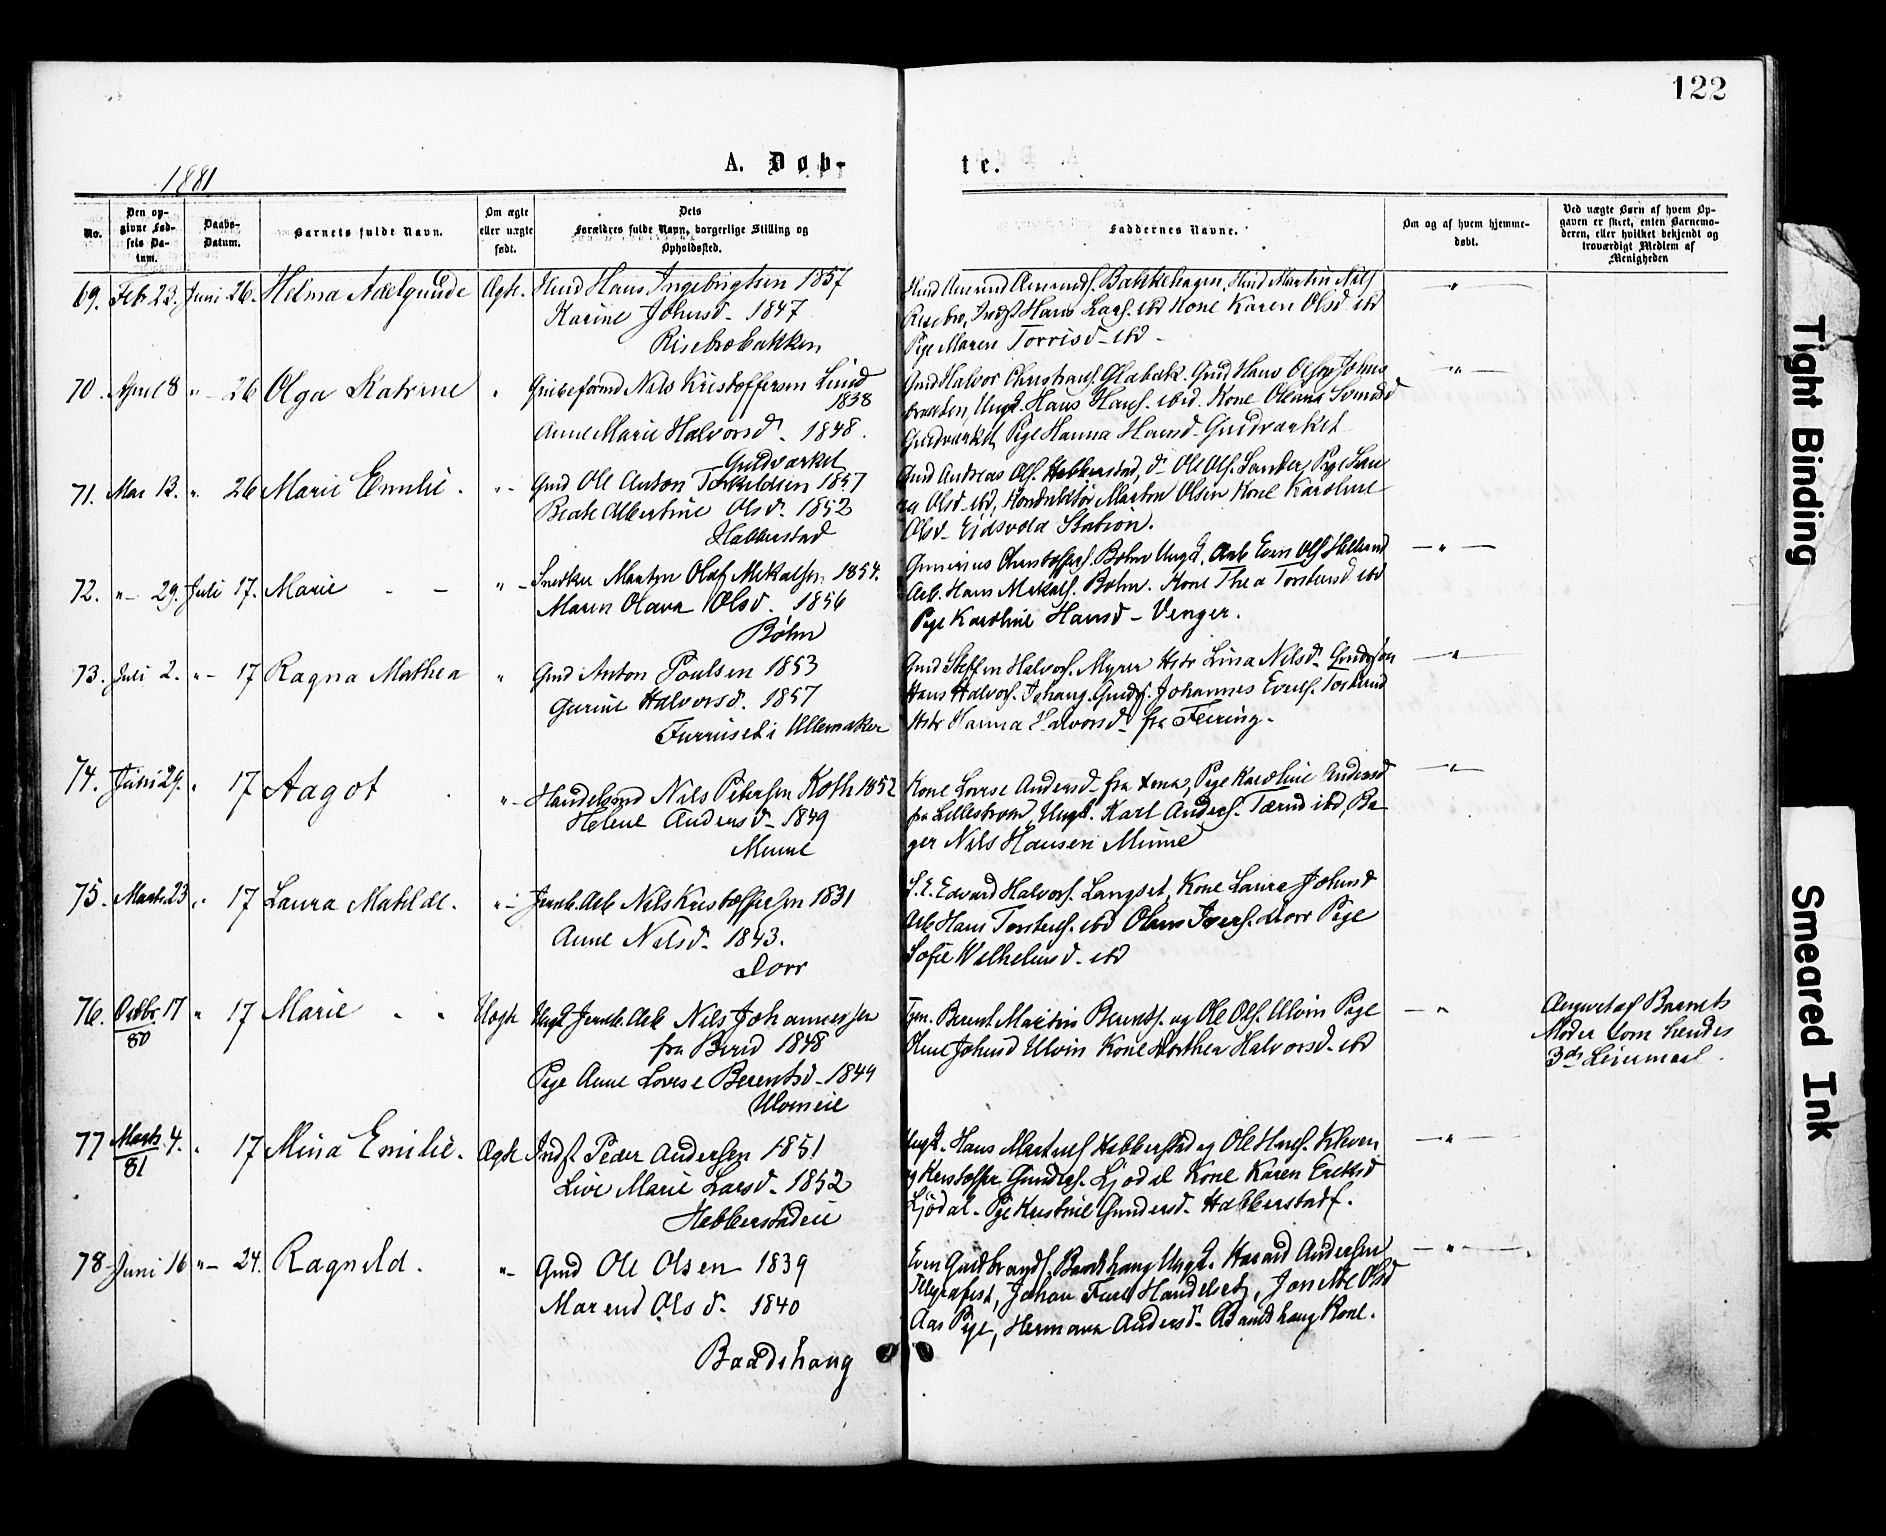 122
1881
A. Døb-
te.
No.
Den op-
givne Fød-
sels Da-
tum.
Daabs-
Datum.
Barnets fulde Navn.
Om ægte
eller uægte
født.
Dets
Forældres fulde Navn, borgerlige Stilling og
Opholdssted.
Faddernes Navne.
Om og af hvem hjemme-
døbt.
Ved uægte Børn af hvem Op-
gaven er skeet, enten Barnemo-
deren, eller hvilket bekjendt og
troværdigt Medlem af
Menigheden
69. Feb 23. Juni 26. Helma Adelgunde Ægte. Hans Ingebrigtsen 1857
Karine Johnsd. 1847
Risebrobakken
Bakkehagen, Martin Nils
Risebro, Indst Hans Lars. ibd Kone Karen Olsd ibd
Pige Maren Torrisd - ibd -
70. April 8 " - 26 Olga Katrine " Grubeformd Nils Kristoffersen Lund
1838
Anne Marie Halvorsd. 1848.
Guldværket
Gmd Halvor Christians. Hans
Ungk. Hans Hans. ibid. Kone Oleana
Guldværket, Pige Hanna Hansd - Guldværket
71. Mai 13. " 26 Marie Emilie. " - Gmd Ole Anton Torkildsen 1857
Beate Albertine Olsd. 1852
Habberstad
Gmd Andreas Ols. Hebberstad, d. Ole Ols. Sander, Pige
Olsd. ibd, Konduktør Martin Olsen Kone Karoline
Olsd - Eidsvold Station.
72. " - 29. Juli 17. Marie - - " - Snedker Martin Olaf Mikalsen 1854.
Maren Olava Olsd. 1856
Bøhn
Gunerius Christoffers. Bøhn Ungk., Arb. Even Ols.
Arb. Hans Mikals. Bøhn. Kone Thea Torstensd ibd
Pige Karoline Hansd - Venger.
73. Juli 2. " - 17 Ragna Mathea " Gmd Anton Poulsen 1853
Gurine Halvorsd. 1857
Furruset i Ullensaker
Gmd Steffen Halvors. Myrer Hstr Lina Nilsd -
Hans Halvors. Johannes Evens.
Hstr Hanna Halvorsd - fra Feiring.
74. Juni 29. " 17 Aagot . " - Handelsmd Nils Petersen Roth 1852
Helene Andersd - 1849
Minne
Kone Lovise Andersd - fra Xnia, Pige Karoline Andersd
fra Lillestrøm, Ungk. Karl Anders. Tærud ibd, Ba-
ger Nils Hansen Minne
75. Marts 23 " 17 Laura Matilde. " - Jernb. Arb. Nils Kristoffersen 1831
Anne Nilsd - 1843.
Dorr
S.E. Edvard Halvors. Langset, Kone Laura Johnsd
Arb Hans Torstens. ibd Olaus Ivers. Dorr Pige
Sofie Wilhelmsd - ibd
76. Octbr. 17 " 17 Marie " " Uægte Ungk Jernb. Arb. Nils Johannessen
80
fra Birid 1848
Pige Anne Lovise Berentsd - 1849
Ulvineie
Tjen. Berent Martin Berents. og Ole Ols. Ulvin Pige
Oline Johnsd Ulvin Kone Dorthea Halvorsd - ibd
Angivet af Barnets
Moder som hendes
3die Leiermaal.
77 Marts 4. " 17 Mina Emilie. Ægte Indst Peder Andersen 1851
81
Live Marie Larsd. 1852
Hebberstadeie
Ungk. Hans Martins. Hebberstad og Ole Hans. Kleven
og Kristoffer Gunders. Ljødal Kone Karen Eriksd
Ljødal - Pige Kristine Gundersd - Habberstad.
78 Juni 16 " - 24. Ragnild. " - Gmd Ole Olsen 1839
Maren Olsd. 1840
Baadshaug
Even Gudbrands. Baadshaug Ungk. Havard Andersen
Telegrafist, Johan Handelsbetj, Olsd
Aas Pige, Hermana Andersd - Baadshaug Kone.
Tight Binding
Smeared Ink